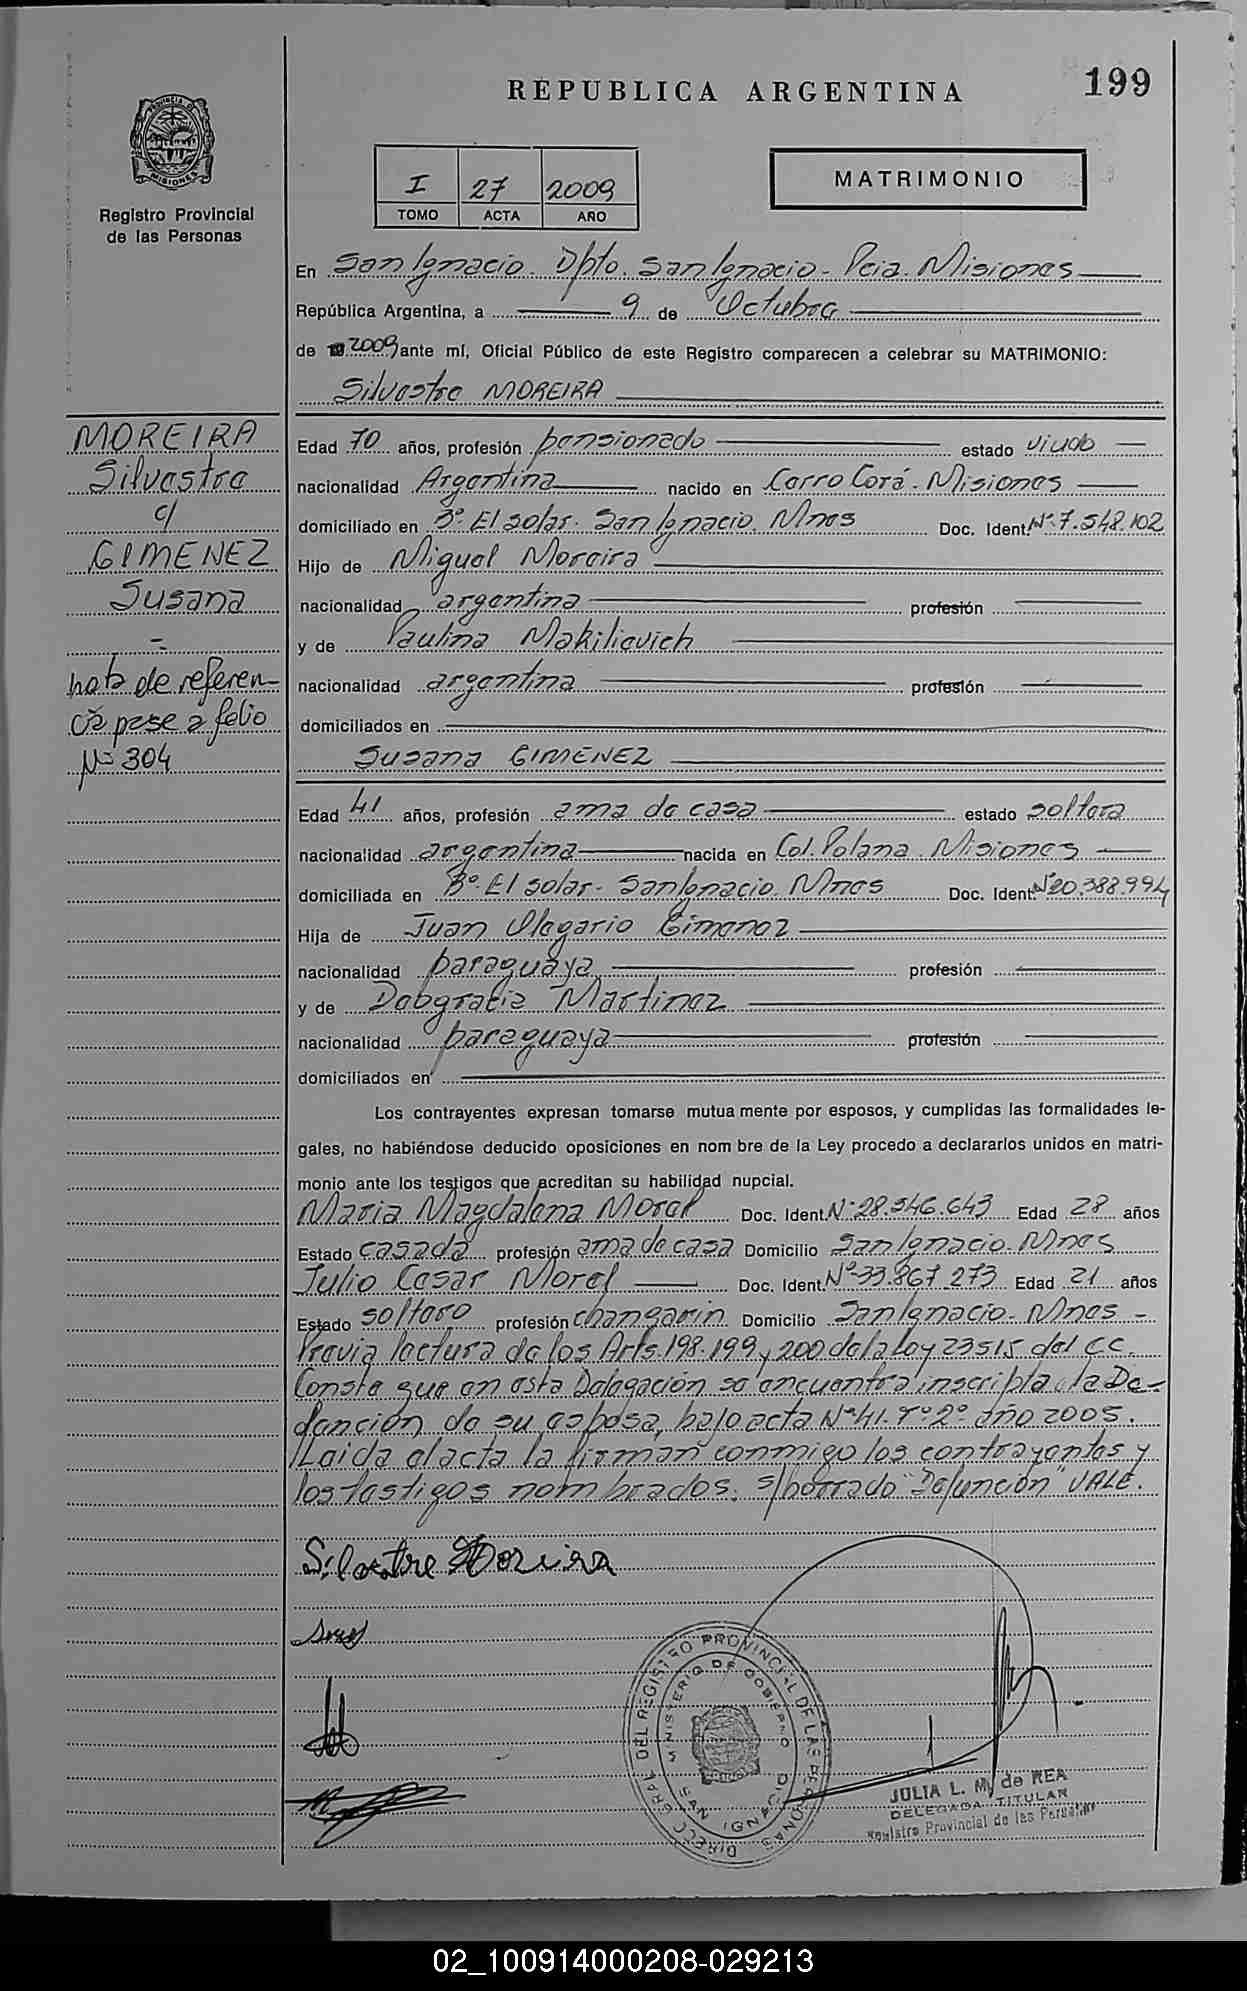 199
REPUBLICA ARGENTINA
PROVINCIA DE MISIONES
Registro Provincial
de las Personas
I 27 2009
TOMO ACTA AÑO
MATRIMONIO
En San Ignacio. Dpto. San Ignacio - Pcia. Misiones
República Argentina, a 9 de Octubre
de 2009 ante mí, Oficial Público de este Registro comparecen a celebrar su MATRIMONIO:
Silvestre MOREIRA
MOREIRA
Silvestre
c/
GIMENEZ
Susana
nota de referen-
cia pase a folio
Nº 304
Edad 70 años, profesión pensionado estado viudo
nacionalidad Argentina nacido en Cerro Corá. Misiones
domiciliado en Bº El solar. San Ignacio. Mnes Doc. Ident. Nº 7.548.102
Hijo de Miguel Moreira
nacionalidad argentina profesión
y de Paulina Makilievich
nacionalidad argentina profesión
domiciliados en
Susana GIMENEZ
Edad 41 años, profesión ama de casa estado soltera
nacionalidad argentina nacida en Col. Polana. Misiones
domiciliada en Bº El solar - San Ignacio. Mnes Doc. Ident. Nº 20.388.994
Hija de Juan Olegario Gimenez
nacionalidad paraguaya profesión
y de Martinez
nacionalidad paraguaya profesión
domiciliados en
Los contrayentes expresan tomarse mutua mente por esposos, y cumplidas las formalidades le-
gales, no habiéndose deducido oposiciones en nom bre de la Ley procedo a declararlos unidos en matri-
monio ante los testigos que acreditan su habilidad nupcial.
Maria Magdalena Morel Doc. Ident. Nº 28.546.643 Edad 28 años
Estado casada profesión ama de casa Domicilio San Ignacio. Mnes
Julio Cesar Morel Doc. Ident. Nº 33.867.273 Edad 21 años
Estado soltero profesión changarin Domicilio San Ignacio - Mnes -
Previa lectura de los Arts. 198. 199 y 200 de la Ley 23515 del C.C.
Consta que en esta Delegación se encuentra inscripta la De-
función de su esposa, bajo acta Nº 41. Tº 2º año 2005.
Leida el acta la firman conmigo los contrayentes y
los testigos nombrados. s/borrado "Defunción" VALE.
Silvestre Moreira
DIRECC. GRAL. DEL REGISTRO PROVINCIAL DE LAS PERSONAS
MINISTERIO DE GOBIERNO
SAN IGNACIO
JULIA L. M. de REA
DELEGADA TITULAR
Registro Provincial de las Personas
02_100914000208-029213